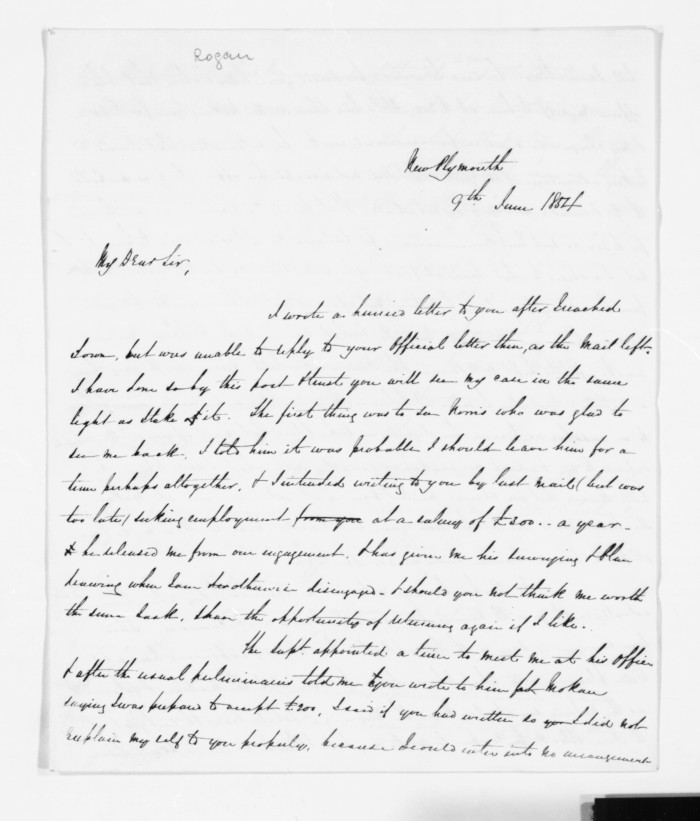 Rogan
New Plymouth
9th June 1854
My Dear Sir,
I wrote a hurried letter to you after I reached
Town, but was unable to reply to your official letter then, as the Mail left.
I have done so by this post & trust you will see my case in the same
light as I take it. The first thing was to see Norris who was glad to
see me back. I told him it was probable I should leave him for a
time perhaps altogether, & I intended writing to you by last mail (but was
too late) seeking employment from you at a salary of £200.. a year -
& he released me from our engagement. & has given me his surveying & Plan
drawing when I am otherwise disengaged - & should you not think me worth
the sum I ask, I have the opportunity of returning again if I like..
The Supt. appointed a time to meet me at his Office
& after the usual preliminaries told me you wrote to him from Mokau
saying I was prepared to accept £200. I said if you had written so I did not
explain my self to you properly, because I could enter into no arrangement